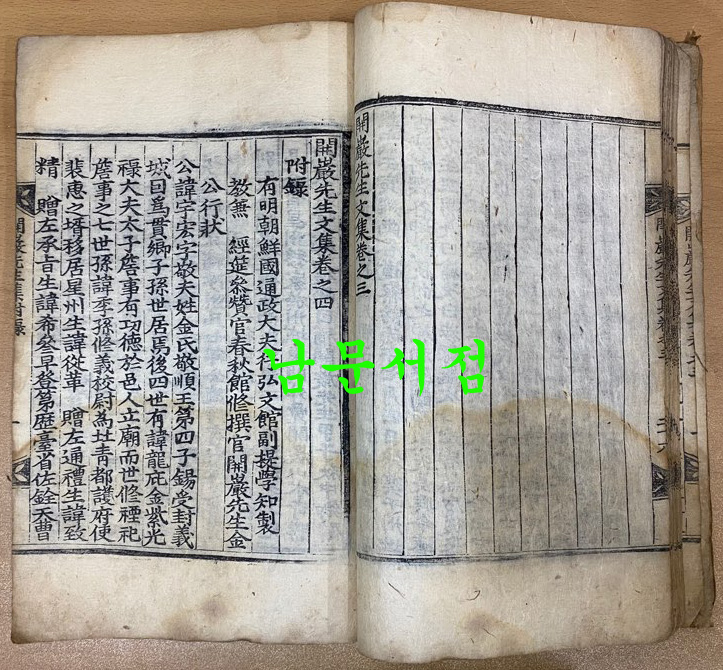 開巖先生文集卷之三
開巖先生文集卷之四
附錄
有明朝鮮國通政大夫行弘文館副提學知製
教兼 經筵參贊官春秋館修撰官開巖先生金
公行狀
公諱宇宏字敬夫姓金氏敬順王第四子錫受封義
城因爲貫鄉子孫世居焉後四世有諱龍庇金紫光
祿大夫太子詹事有功德於邑人立廟而世修禋祀
詹事之七世孫諱季孫修義校尉為北青都護府使
裴惠之壻移居星州生諱從革 贈左通禮生諱致
精 贈左承旨生諱希參早登第歷臺省佐銓天曹
남문서점